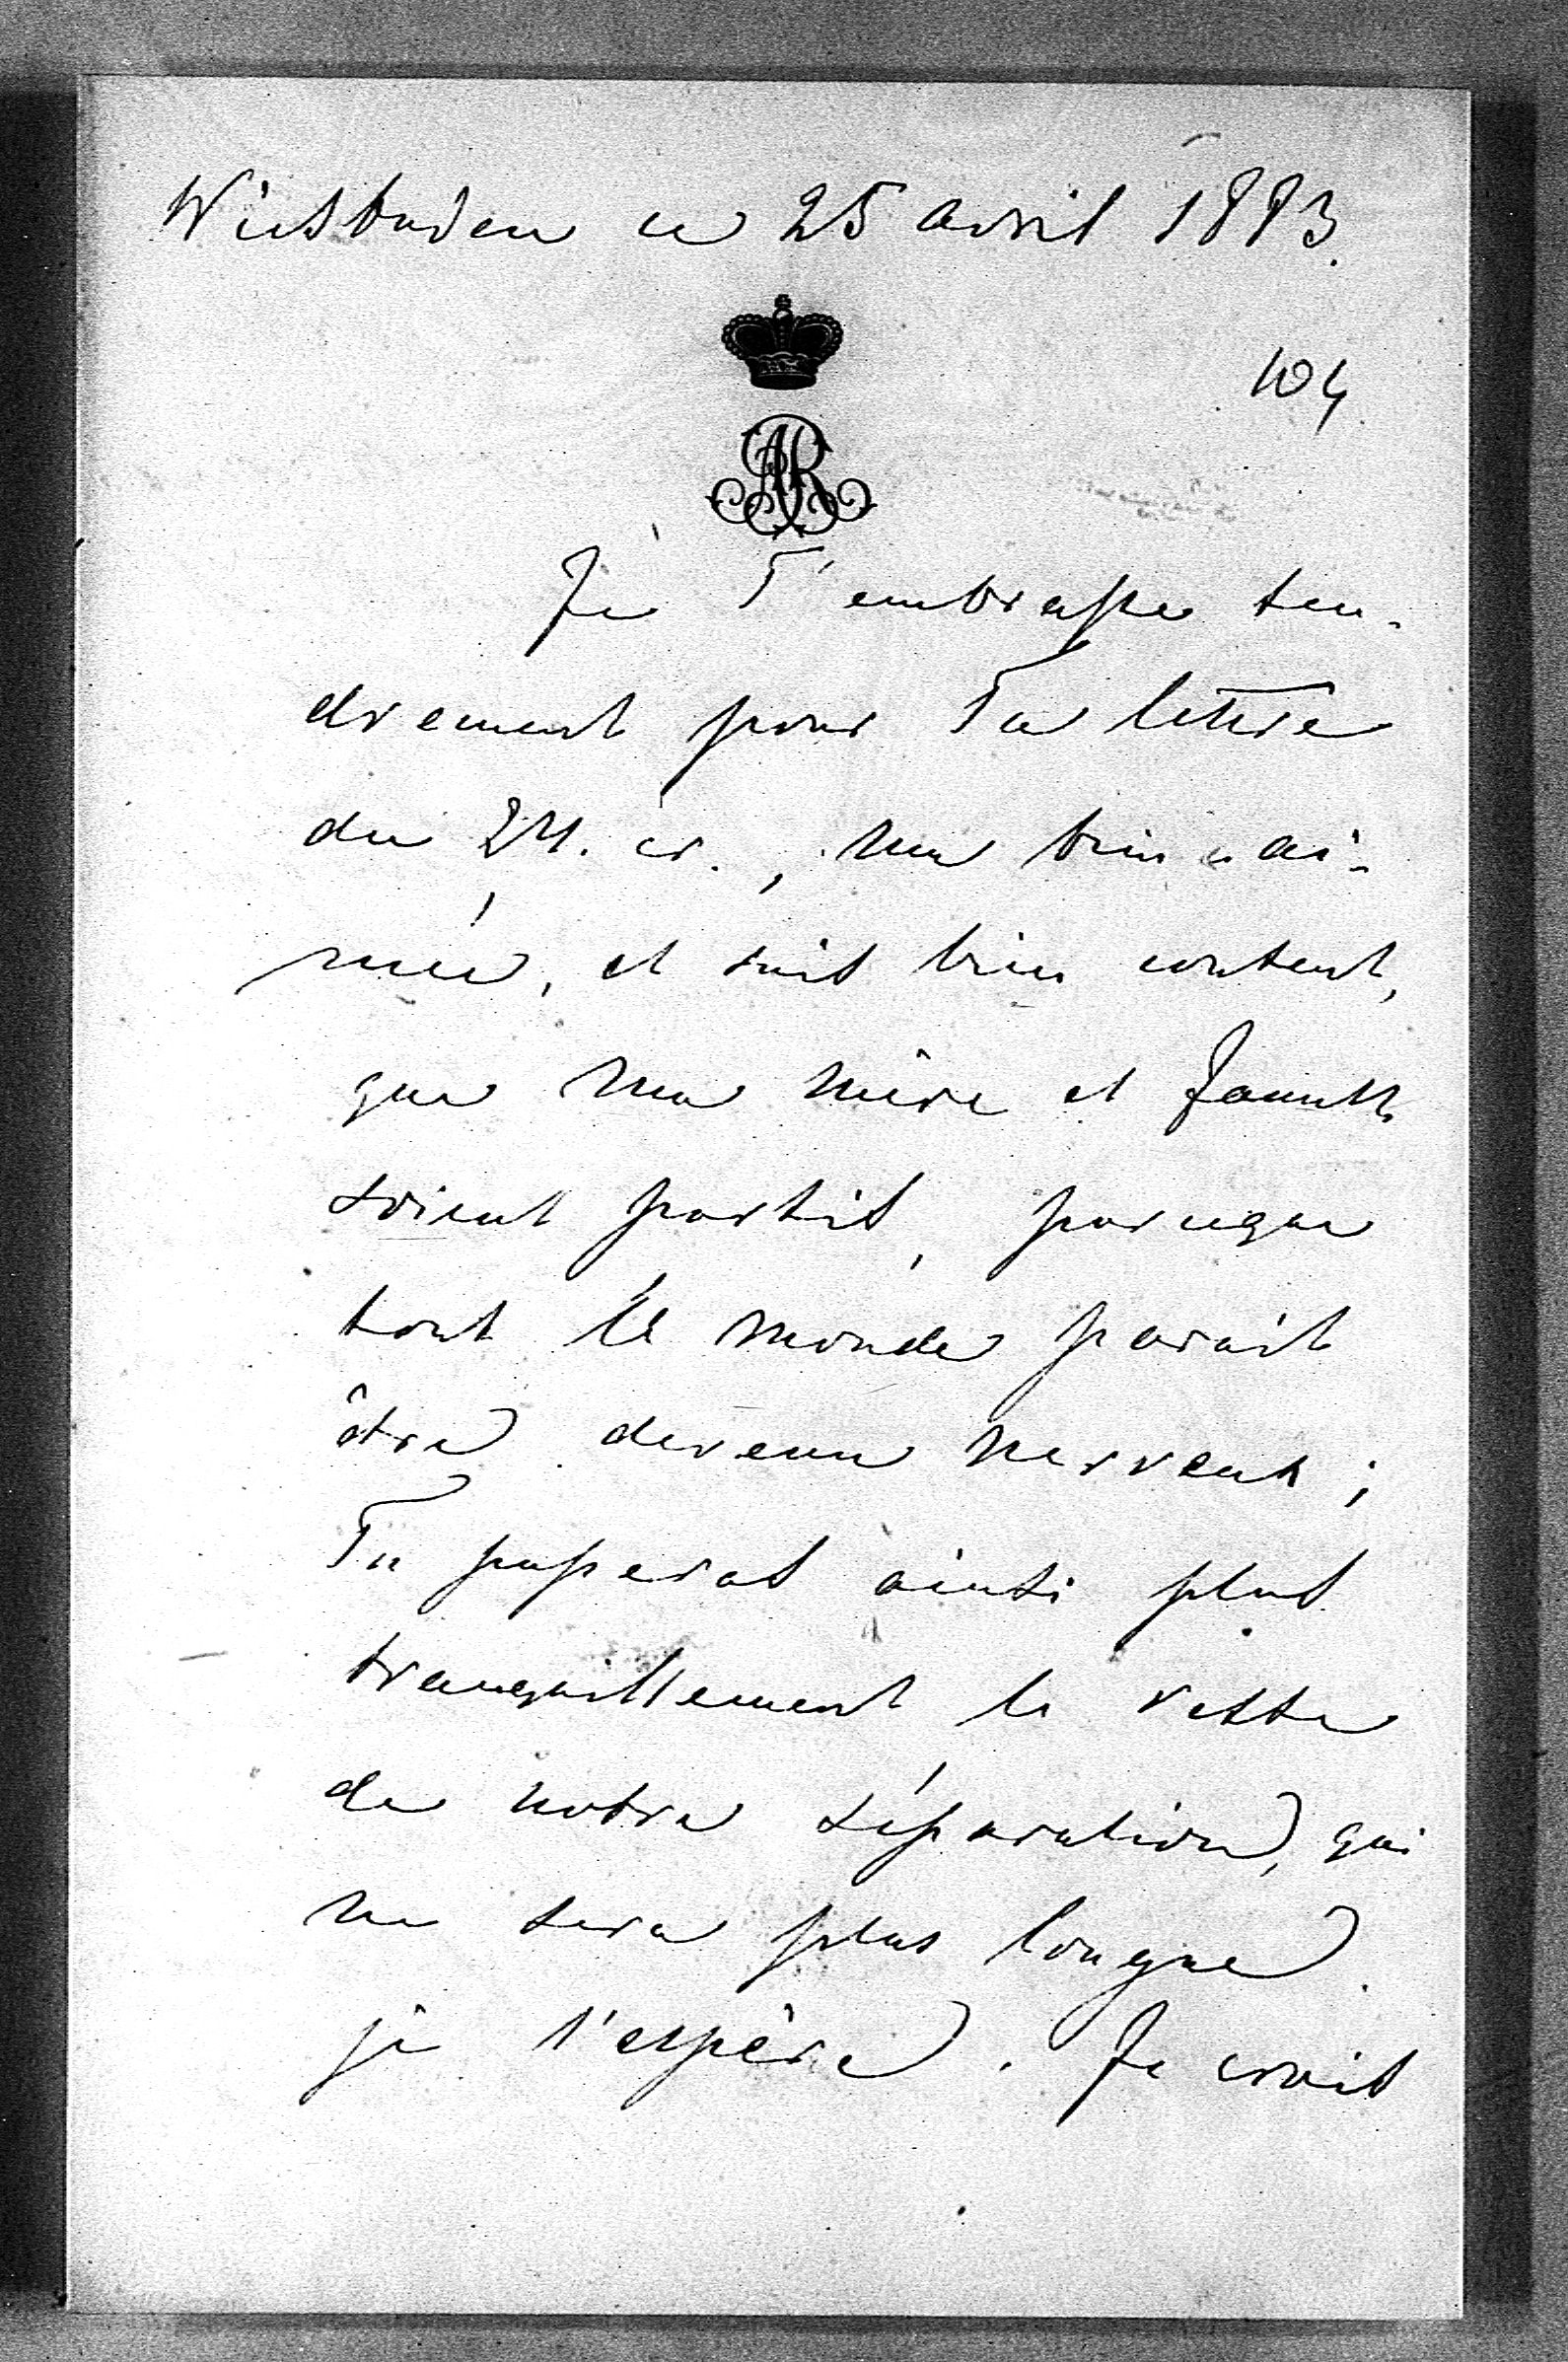 Wiesbaden ce 25 avril 1893.
104
AR
Je T'embrasse ten-
drement pour Ta lettre
du 24. cr., ma bien-ai-
mée, et suis bien content,
que ma mère et
soient partis, parceque
tout le monde parait
être devenu nerveux;
Tu passeras ainsi plus
tranquillement le reste
de notre séparation, qui
ne sera plus longue
je l'espère. Je crois